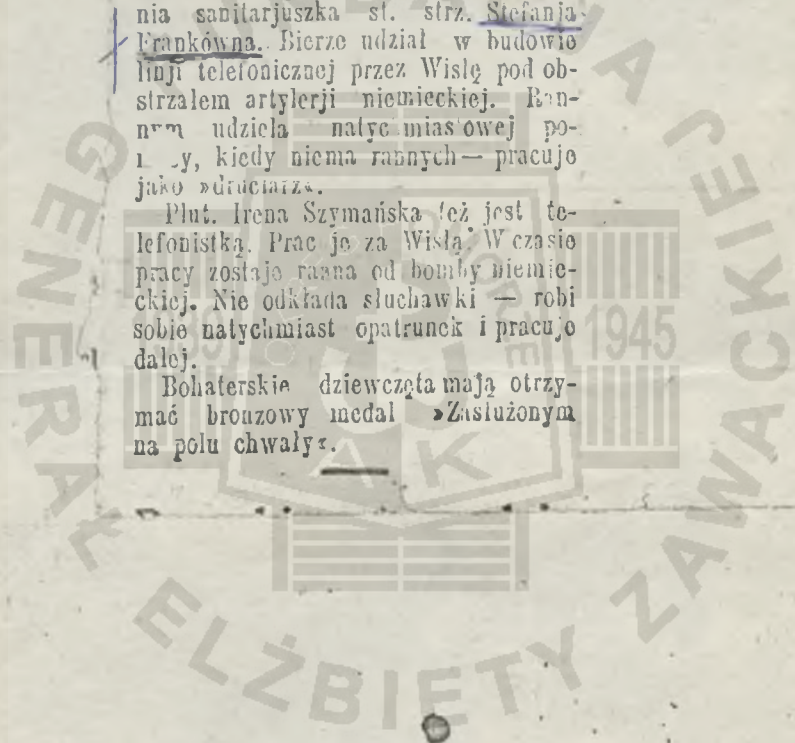 nia sanitarjuszka st. strz. Stefanja
Frankówna. Bierze udział w budowie
linji telefonicznej przez Wisłę pod ob-
strzałem artylerji niemieckiej. Ran-
nym udziela natychmiastowej po-
kiedy niema rannych — pracuje
jako »druciarz«.
Plut. Irena Szymańska też jest te-
lefonistką. Pracuje za Wisłą. W czasie
pracy zostaje ranna od bomby niemie-
ckiej. Nie odkłada słuchawki — robi
sobie natychmiast opatrunek i pracuje
dalej.
Bohaterskie dziewczęta mają otrzy-
mać bronzowy medal »Zasłużonym
na polu chwały«.
GENERAŁ ELŻBIETY ZAWACKIEJ
1945
AK